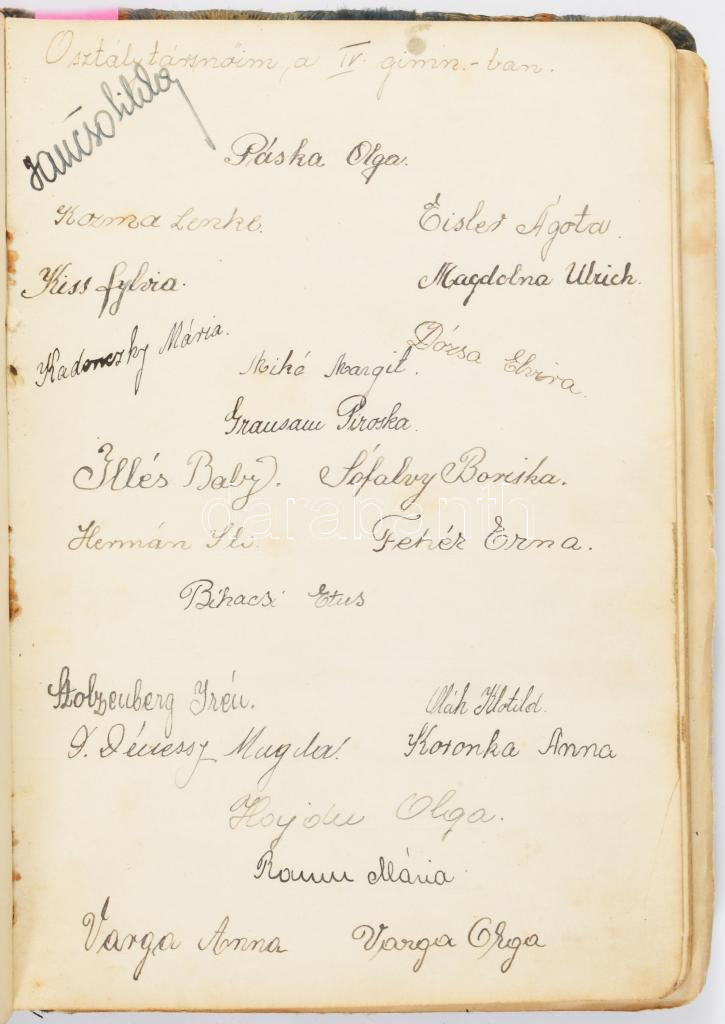 Osztálytársnőim a IV. gimn.-ban.
Jancsó Hilda
Páska Olga.
Kozma Lenke.
Eisler Ágota.
Kiss Sylvia.
Magdolna Ulrich.
Kadonczky Mária.
Dózsa Elvira.
Mikó Margit.
Grausam Piroska.
Illés Baby.
Sófalvy Boriska.
darabanth
Hermán Ili.
Fehér Erna.
Bihacsi Etus
Stolzenberg Irén.
Oláh Klotild.
Magda.
Koronka Anna
Hajdu Olga.
Mária
Varga Anna
Varga Olga